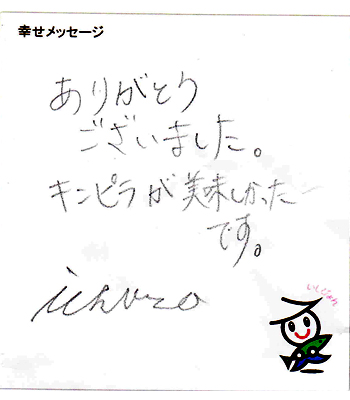 幸せメッセージ
ありがとう
ございました。
キンピラが美味しかった
です。
ichiro